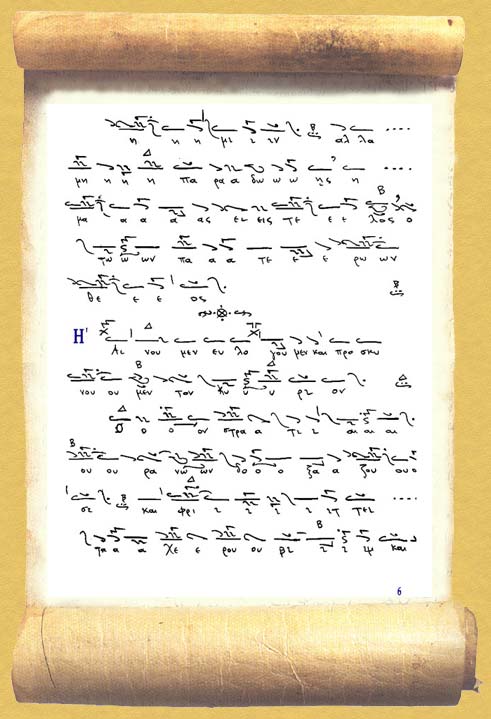 η η η μι ι ιν αλ λα
μη η η η πα ρα α δω ω ω ης η
μα α α α ας ει εις τε ε ε λος ο
τω ω ων πα α α τε ε ε ρω ων
θε ε ε ος
Η' Αι νου μεν ευ λο γου μεν και προ σκυ
νου ου μεν τον Κυ υ υ ρι ον
Ο ο ο ον στρα α τι ι αι αι αι
ου ου ρα νω ων δο ο ο ξα α ζου ου ο
σι και φρι ι ι ι ι ιτ τει
τα α α Χε ε ρου ου βι ι ι μ και
6